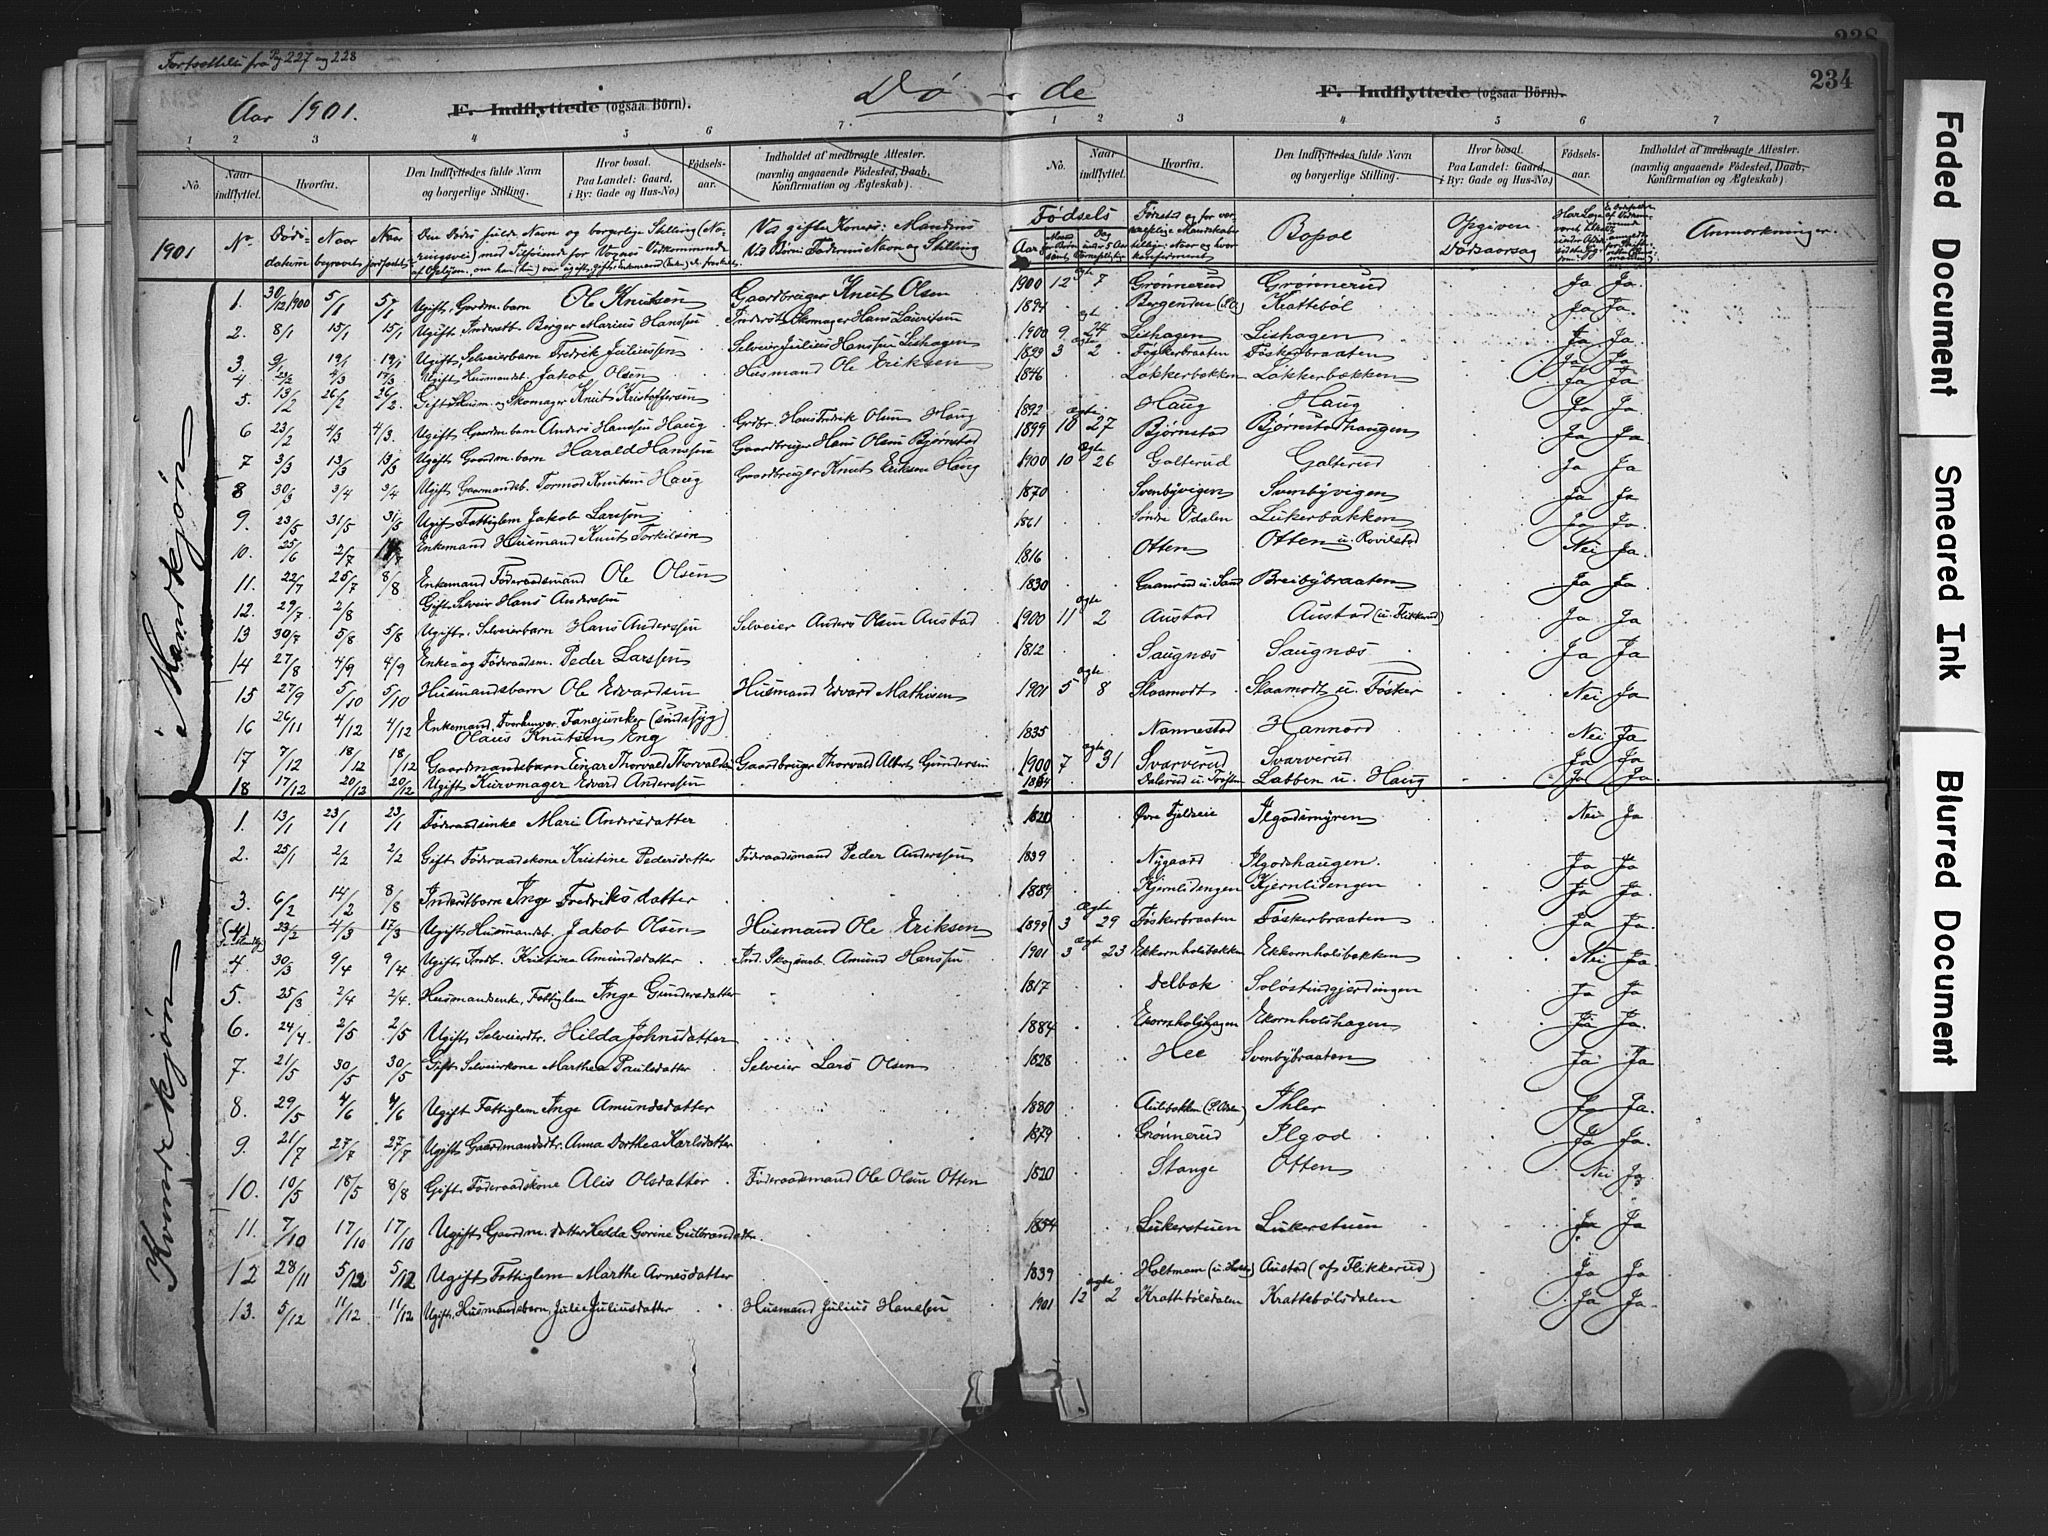 Fortsættelse fra Pag 227 og 228
Aar 1901.
F. Indflyttede (ogsaa Börn).
Dö - de
F. Indflyttede (ogsaa Börn).
234
1 2 3 4 5 6 7
1 2 3 4 5 6 7
No. Naar indflyttet. Hvorfra. Den Indflyttedes fulde Navn og borgerlige Stilling. Hvor bosat. Paa Landet: Gaard, i By: Gade og Hus-No.) Födselsaar. Indholdet af medbragte Attester. (navnlig angaaende Födested, Daab, Konfirmation og Ægteskab).
No. Naar indflyttet. Hvorfra. Den Indflyttedes fulde Navn og borgerlige Stilling. Hvor bosat. Paa Landet: Gaard, i By: Gade og Hus-No.) Födselsaar. Indholdet af medbragte Attester. (navnlig angaaende Födested, Daab, Konfirmation og Ægteskab).
1901 No. Dødsdatum Naar begravet Naar jordfæstet Den Dødes fulde Navn og borgerlige Stilling
Ved gifte Koner: Mandens
Ved Børn: Faderens Navn og Stilling
Fødsels Aar
Bopæl
Opgiven Dødsaarsag
Anmerkninger.
Mandkjøn
1. 30/12 1900 5/1 5/1 Ugift, Gardm. barn Ole Knutsen Gaardbruger Knut Olsen 1900 12 ægte 7 Grønnerud Grønnerud Ja Ja.
2. 8/1 15/1 15/1 Ugift Inderst Birger Marius Hanssen Inderst Skomager Hans Lauritsen 1894 Krattebøl Ja Ja.
3. 9/1 19/1 19/1 Ugift, Selveierbarn Fredrik Juliussen Selveier Julius Hanssen Lishagen 1900 9 ægte 24 Lishagen Lishagen Ja Ja.
4. 23/2 4/3 17/3 Ugift Husmandsb. Jakob Olsen Husmand Ole Eriksen 1899 3 ægte 2 Föskerbraaten Föskerbraaten Ja Ja
5. 13/2 26/2 26/2 Gift Husm. og Skomager Knut Kristoffersen 1846 Løkkerbakken Løkkerbakken Ja Ja
6 23/2 4/3 4/3. Ugift Gaardm. barn Anders Hanssen Haug Grdbr. Hans Fredrik Olsen Haug 1892 Haug Haug Ja Ja.
7 3/3 13/3 13/3 Ugift Gaardm. barn Harald Hanssen Gaardbruger Hans Olsen Bjørnstad 1899 10 ægte 27 Bjørnstad Bjørnstadhaugen Ja Ja
8 30/3 3/4 3/4 Ugift Gaarmandsb. Tormod Knutsen Haug Gaardbruger Knut Eriksen Haug 1900 10 Ægte 26 Galterud Galterud Ja Ja
9. 23/5 31/5 31/5 Ugift Fattiglem Jakob Larssen 1870 Svenbyvigen Svenbyvigen Ja Ja
10. 25/6 2/7 Enkemand Husmand Knut Torkilsen 1861 Søndre Odalen Lukerbakken Ja Ja.
11. 22/7 25/7 8/8 Enkemand Föderaadsmand Ole Olsen 1816 Otten Otten u. Rovilstad Nei Ja.
12. 29/7 2/8 Gift Selveier Hans Anderssen 1830 Breibybraaten Ja Ja
13 30/7 5/8 5/8 Ugift. Selveierbarn Hans Anderssen Selveier Anders Olsen Austad 1900 11 ægte 2 Austad Austad (u. Flikkerud) Ja Ja
14 27/8 4/9 4/9 Enke og Föderaadsm. Peder Larssen 1812 Saugnæs Saugnæs Ja Ja
15 27/9 5/10 5/10 Husmandsbarn Ole Edvardsen Husmand Edvard Mathisen 1901 5 ægte 8 Skaamodt Skaamodt u. Fösker Nei Ja
16 26/11 4/12 4/12 Enkemand Fanejunker
Olaus Knutsen Eng 1835 Nannestad Hannord Nei Ja
17 7/12 18/12 18/12 Gaardmandsbarn Einar Thorvald Thorvaldsen Gaardbruger Thorvald Albert Gundersen 1900 7 ægte 31 Svarverud Svarverud Ja Ja.
18 17/12 20/12 20/12 Ugift Kurvmager Edvard Anderssen 1864 Labben u. Haug Ja Ja.
Kvindekjøn
1. 13/1 23/1 23/1 Föderaadsenke Mari Andersdatter 1820 Øvre Fjeldseie Ilgodsmyren Nei Ja
2. 25/1 2/2 2/2 Gift Föderaadskone Kristine Pedersdatter Föderaadsmand Peder Anderssen 1839 Nygaard Ilgodshaugen. Ja Ja
3. 6/2 14/2 8/8 Inderstbarn Inge Fredriksdatter 1889 Kjernlidengen Kjernlidengen Ja Ja.
(4) 23/2 4/3 17/3 Ugift Husmandsb. Jakob Olsen Husmand Ole Eriksen 1899 3 Ægte 29 Föskerbraaten Föskerbraaten Ja Ja.
4 30/3 9/4 9/4 Ugift Indb. Kristina Amundsdatter Amund Hanssen 1901 3 ægte 23 Ekkornholsbakken Ekkornholsbakken Nei Ja.
5. 25/3 2/4 2/4. Husmandsenke, Fattiglem Inge Gundersdatter 1817 Delbak Soløstindgjerdingen Ja Ja
6. 24/4 2/5 2/5 Ugift Selveierdtr. Hilda Johnsdatter 1884 Ekornholshagen Ekornholshagen Ja Ja.
7. 21/5 30/5 30/5 Gift Selveierkone Marthea Paulsdatter Selveier Lars Olsen 1828 Hee Svenbybraaten Ja Ja
8. 29/5 4/6 4/6 Ugift Fattiglem Inge Amundsdatter 1880 Ihler Ja Ja.
9. 21/7 27/7 27/7 Ugift Gaardmandsdtr. Anna Dorthea Karlsdatter 1879 Grønnerud Ilgod Ja Ja.
10. 10/5 18/5 8/8 Gift Föderaadskone Alis Olsdatter Föderaadsmand Ole Olsen Otten 1820 Stange Otten Nei Ja
11. 7/10 17/10 17/10 Ugift Gaardm. datter Hedda Gorine Gulbrandsdtr. 1854 Lukerstuen Lukerstuen Ja Ja
12 28/11 5/12 5/12 Ugift Fattiglem Marthe Arnesdatter 1839 Austad (af Flikkerud) Ja Ja
13. 5/12 11/12 11/12 Ugift, Husmandsbarn, Julie Juliusdatter Husmand Julius Hanssen 1901 12 ægte 2 Krattebølsdalen Krattebølsdalen Ja Ja.
Faded Document
Smeared Ink
Blurred Document